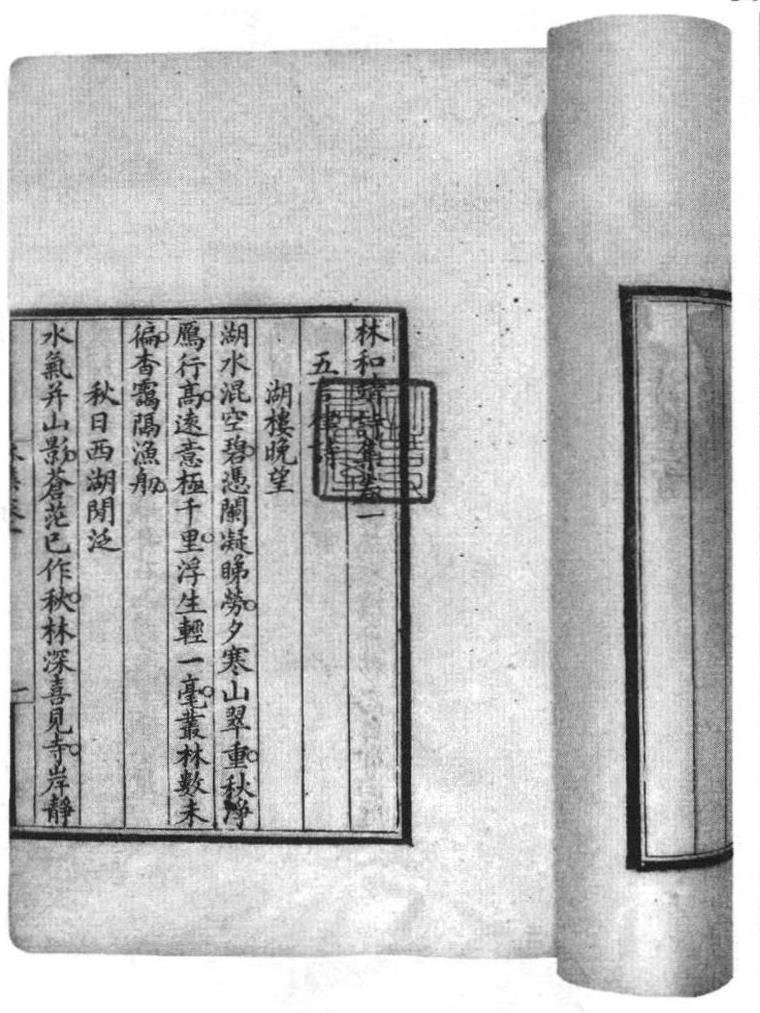 林和靖詩集卷一
五言律詩
湖樓晚望
湖水混空碧憑闌凝睇勞夕寒山翠重秋淨
鴈行髙遠意極千里浮生輕一毫叢林數未
徧杳靄隔漁舠
秋日西湖閒泛
水氣并山影蒼茫已作秋林深喜見寺岸靜